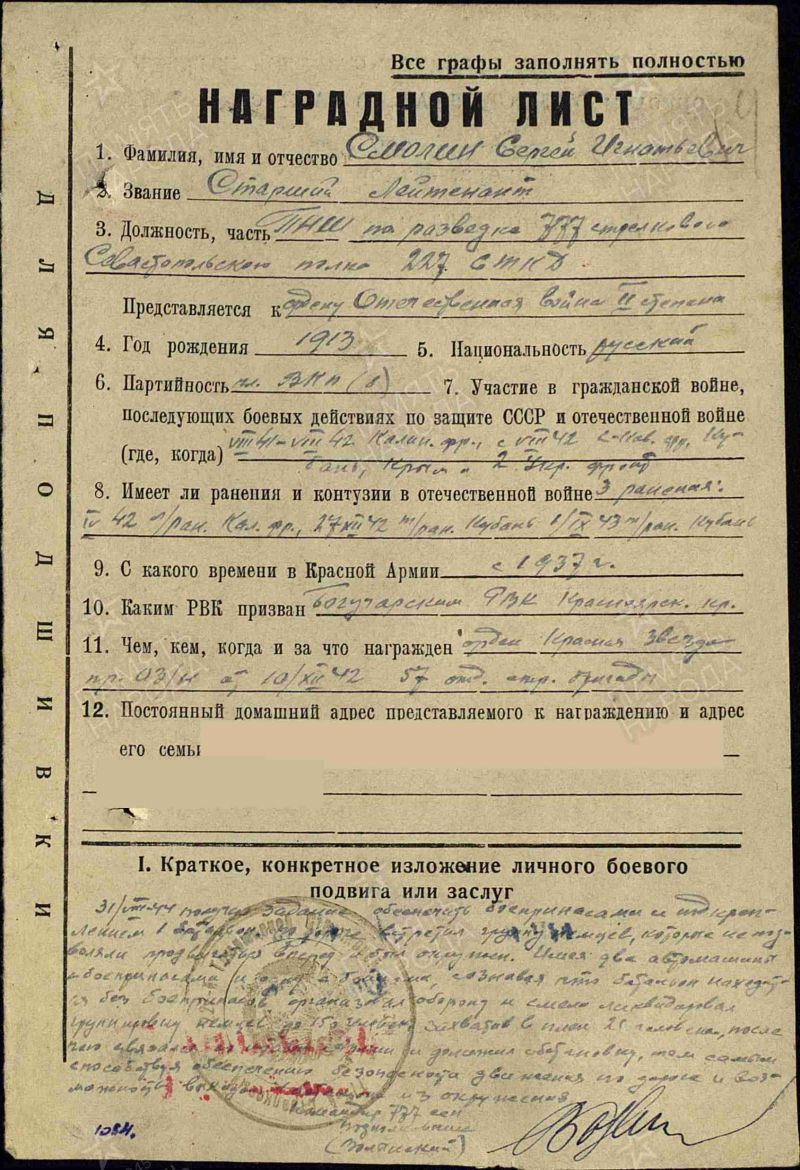 Все графы заполнять полностью
НАГРАДНОЙ ЛИСТ
1. Фамилия, имя и отчество Смолин Сергей Игнатьевич
2. Звание Старший Лейтенант
3. Должность, часть ПНШ по разведке 777 стрелкового
Севастопольского полка 227 СТКД
Представляется к ордену Отечественная война II степени
4. Год рождения 1913 5. Национальность русский
6. Партийность чл. ВКП(б) 7. Участие в гражданской войне,
последующих боевых действиях по защите СССР и отечественной войне
(где, когда) VIII 41-VIII 42 Калин. фр., с VIII 42 С-Кав. фр., Ку-
бань, Крым и 2 Укр. фронт
8. Имеет ли ранения и контузии в отечественной войне 3 ранения:
IV 42 л/ран. Кал. фр., 27 XII 42 т/ран. Кубань 1/IX 43 т/ран. Кубань
9. С какого времени в Красной Армии с 1937 г.
10. Каким РВК призван Богучарским РВК Красноярск. кр.
11. Чем, кем, когда и за что награжден орден Красная Звезда
пр. 03/н от 10/XII 42 57 отд. стр. бригады
12. Постоянный домашний адрес представляемого к награждению и адрес
его семьи
ДЛЯ ПОДШИВКИ
I. Краткое, конкретное изложение личного боевого
подвига или заслуг
31/VIII 44 получил задание обеспечить боеприпасами и подкреп-
лением 1 батальон. По дороге встретил группу немцев, которые не поз-
воляли продвигаться вперед и был окружен. Имея два автомашины
с боеприпасами и сознавая что батальон находит-
ся без боеприпасов организовал оборону и смело ликвидировал
группировку немцев до 150 человек захватив в плен 25 человек, после
чего связался и доложил обстановку, тем самым
способствуя обеспечению безопасного движения по дороге и воз-
можность выхода из окружения
Командир 777 ссп
Подполковник
1084.